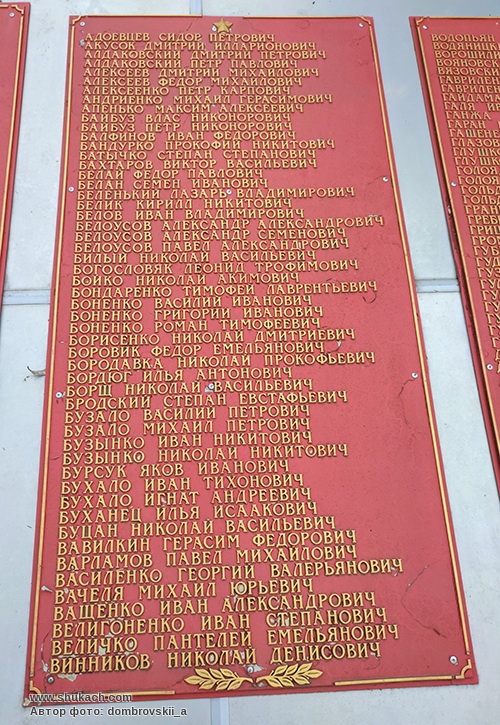 АДОЕВЦЕВ СИДОР ПЕТРОВИЧ
АКУСОК ДМИТРИЙ ИЛЛАРИОНОВИЧ
АЛДАКОВСКИЙ ДМИТРИЙ ПЕТРОВИЧ
АЛДАКОВСКИЙ ПЕТР ПАВЛОВИЧ
АЛЕКСЕЕВ ДМИТРИЙ МИХАЙЛОВИЧ
АЛЕКСЕЕВ ФЕДОР МИХАЙЛОВИЧ
АЛЕКСЕЕНКО ПЕТР КАРПОВИЧ
АНДРИЕНКО МИХАИЛ ГЕРАСИМОВИЧ
АПЕНЬКО МАКСИМ АЛЕКСЕЕВИЧ
БАЙБУЗ ВЛАС НИКОНОРОВИЧ
БАЙБУЗ ПЕТР НИКОНОРОВИЧ
БАЛФИНОВ ИВАН ФЕДОРОВИЧ
БАНДУРКО ПРОКОФИЙ НИКИТОВИЧ
БАТЫЧКО СТЕПАН СТЕПАНОВИЧ
БАХТАРОВ ВИКТОР ВАСИЛЬЕВИЧ
БЕЛАЙ ФЕДОР ПАВЛОВИЧ
БЕЛАН СЕМЕН ИВАНОВИЧ
БЕЛЕНЬКИЙ ЛАЗАРЬ ВЛАДИМИРОВИЧ
БЕЛИК КИРИЛЛ НИКИТОВИЧ
БЕЛОВ ИВАН ВЛАДИМИРОВИЧ
БЕЛОУСОВ АЛЕКСАНДР АЛЕКСАНДРОВИЧ
БЕЛОУСОВ АЛЕКСАНДР СЕМЕНОВИЧ
БЕЛОУСОВ ПАВЕЛ АЛЕКСАНДРОВИЧ
БИЛЫЙ НИКОЛАЙ ВАСИЛЬЕВИЧ
БОГОСЛОВЯК ЛЕОНИД ТРОФИМОВИЧ
БОЙКО НИКОЛАЙ АКИМОВИЧ
БОНДАРЕНКО ТИМОФЕЙ ЛАВРЕНТЬЕВИЧ
БОНЕНКО ВАСИЛИЙ ИВАНОВИЧ
БОНЕНКО ГРИГОРИЙ ИВАНОВИЧ
БОНЕНКО РОМАН ТИМОФЕЕВИЧ
БОРИСЕНКО НИКОЛАЙ ДМИТРИЕВИЧ
БОРОВИК ФЕДОР ЕМЕЛЬЯНОВИЧ
БОРОДАВКА НИКОЛАЙ ПРОКОФЬЕВИЧ
БОРДЮГ ИЛЬЯ АНТОНОВИЧ
БОРЩ НИКОЛАЙ ВАСИЛЬЕВИЧ
БРОДСКИЙ СТЕПАН ЕВСТАФЬЕВИЧ
БУЗАЛО ВАСИЛИЙ ПЕТРОВИЧ
БУЗАЛО МИХАИЛ ПЕТРОВИЧ
БУЗЫНКО ИВАН НИКИТОВИЧ
БУЗЫНКО НИКОЛАЙ НИКИТОВИЧ
БУРСУК ЯКОВ ИВАНОВИЧ
БУХАЛО ИВАН ТИХОНОВИЧ
БУХАЛО ИГНАТ АНДРЕЕВИЧ
БУХАНЕЦ ИЛЬЯ ИСААКОВИЧ
БУЦАН НИКОЛАЙ ВАСИЛЬЕВИЧ
ВАВИЛКИН ГЕРАСИМ ФЕДОРОВИЧ
ВАРЛАМОВ ПАВЕЛ МИХАЙЛОВИЧ
ВАСИЛЕНКО ГЕОРГИЙ ВАЛЕРЬЯНОВИЧ
ВАЧЕЛЯ МИХАИЛ ЮРЬЕВИЧ
ВАЩЕНКО ИВАН АЛЕКСАНДРОВИЧ
ВЕЛИГОНЕНКО ИВАН СТЕПАНОВИЧ
ВЕЛИЧКО ПАНТЕЛЕЙ ЕМЕЛЬЯНОВИЧ
ВИННИКОВ НИКОЛАЙ ДЕНИСОВИЧ
www.shukach.com
Автор фото: dombrovskii_a